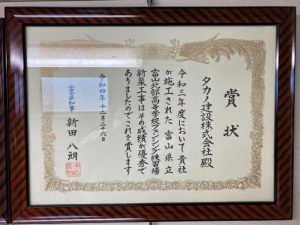 賞状
タカノ建設株式会社殿
令和三年度において貴社
が施工された富山県立
富山北部高等学校フェンシング練習場
新築工事はその成績が優秀で
ありましたのでこれを賞します
令和四年十二月二十六日
富山県知事
新田八朗